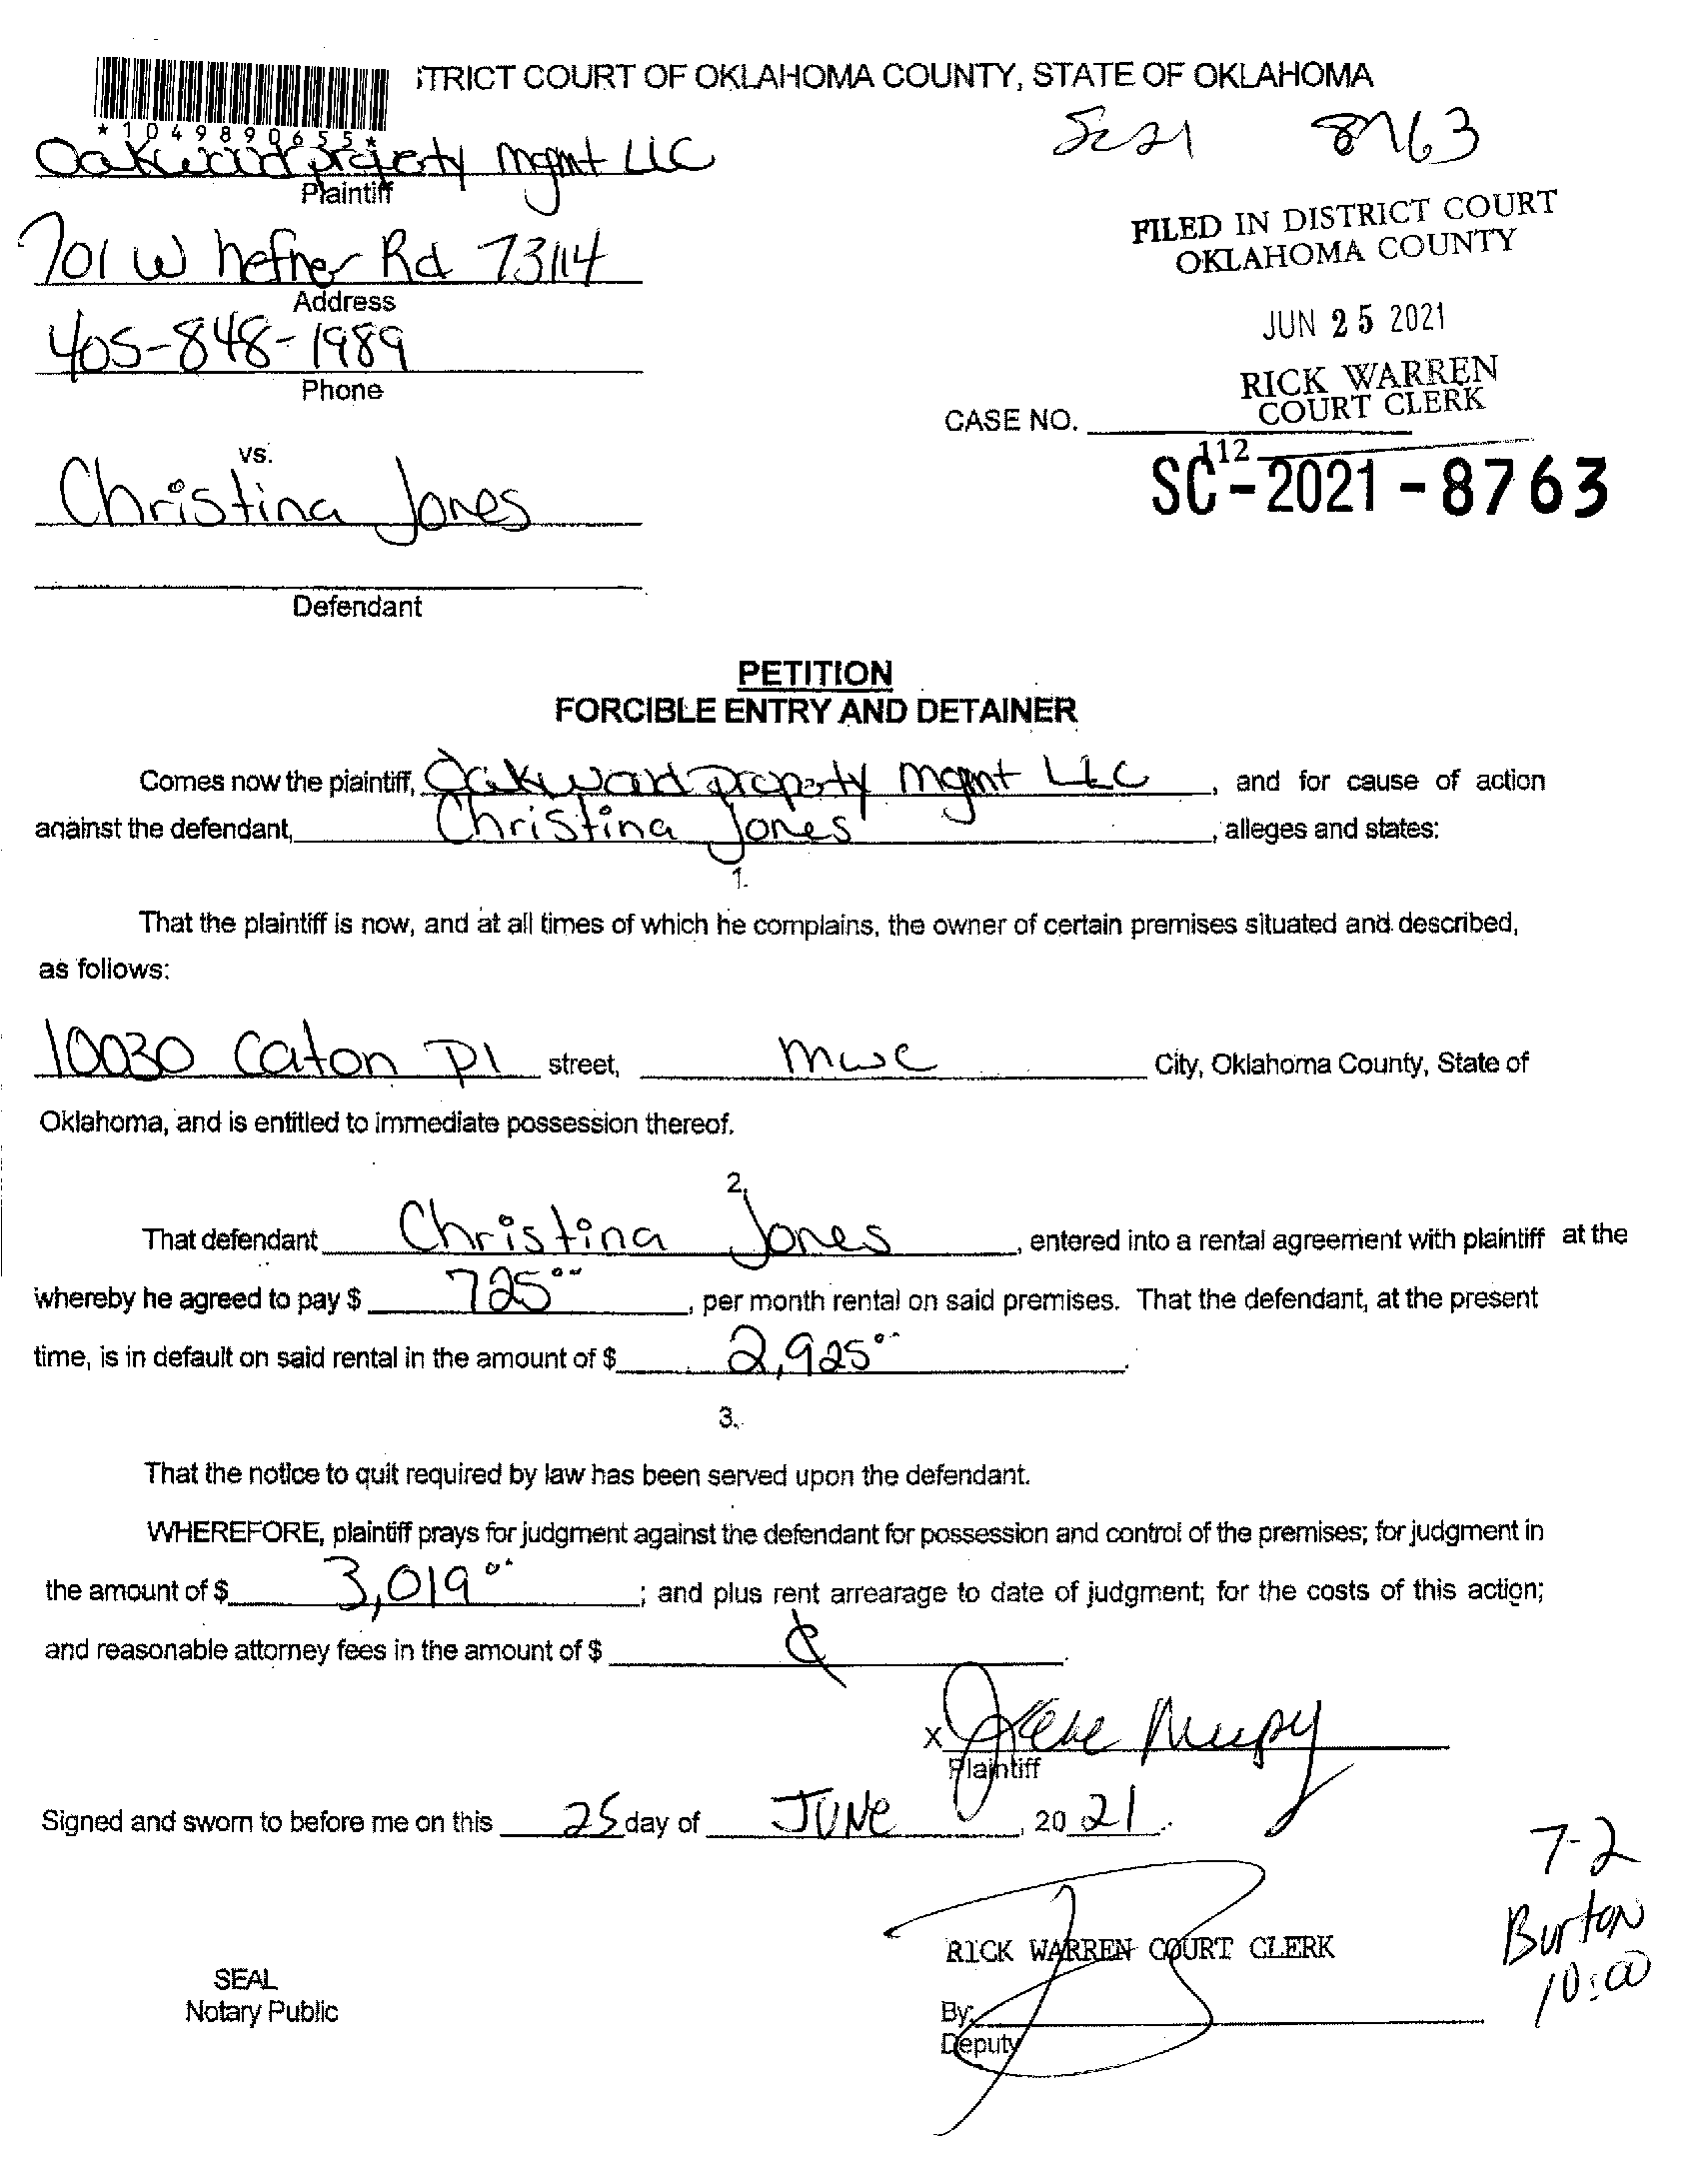 STRICT COURT OF OKLAHOMA COUNTY, STATE OF OKLAHOMA
*1049890655*
SC21 8763
Oakwood property mgmt LLC
Plaintiff
701 W hefner Rd 73114
Address
405-848-1989
Phone
FILED IN DISTRICT COURT
OKLAHOMA COUNTY
JUN 25 2021
RICK WARREN
COURT CLERK
CASE NO.
112
SC-2021-8763
vs.
Christina Jones
Defendant
PETITION
FORCIBLE ENTRY AND DETAINER
Comes now the plaintiff, Oakwood property mgmt LLC, and for cause of action
against the defendant, Christina Jones, alleges and states:
1.
That the plaintiff is now, and at all times of which he complains, the owner of certain premises situated and described,
as follows:
10030 Caton Pl street, mwc City, Oklahoma County, State of
Oklahoma, and is entitled to immediate possession thereof.
2.
That defendant Christina Jones, entered into a rental agreement with plaintiff at the
whereby he agreed to pay $ 725.00, per month rental on said premises. That the defendant, at the present
time, is in default on said rental in the amount of $ 2,925.00.
3.
That the notice to quit required by law has been served upon the defendant.
WHEREFORE, plaintiff prays for judgment against the defendant for possession and control of the premises; for judgment in
the amount of $ 3,019.00; and plus rent arrearage to date of judgment; for the costs of this action;
and reasonable attorney fees in the amount of $
X
Plaintiff
Signed and sworn to before me on this 25 day of JUNE, 20 21.
7-2
Burton
10:00
RICK WARREN COURT CLERK
SEAL
Notary Public
By:
Deputy